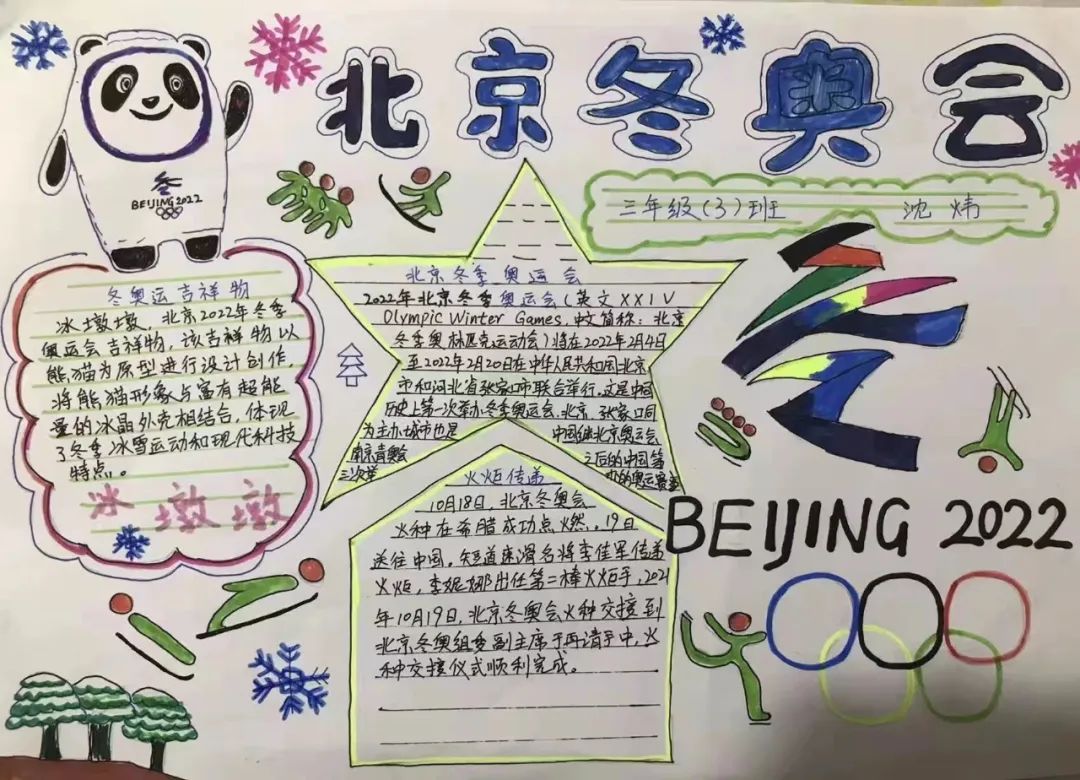 北京冬奥会
三年级(3)班 沈炜
BEIJING 2022
冬奥运吉祥物
冰墩墩，北京2022年冬季
奥运会吉祥物，该吉祥物以
熊猫为原型进行设计创作，
将熊猫形象与富有超能
量的冰晶外壳相结合，体现
了冬季冰雪运动和现代科技
特点。
冰墩墩
北京冬季奥运会
2022年北京冬季奥运会(英文XXIV
Olympic Winter Games，中文简称：北京
冬季奥林匹克运动会)将在2022年2月4日
至2022年2月20日在中华人民共和国北京
市和河北省张家口市联合举行。这是中国
历史上第一次举办冬季奥运会，北京、张家口同
为主办城市也是 中国继北京奥运会
南京青奥会 之后的中国第
三次举 办的奥运赛事
火炬传递
10月18日，北京冬奥会
火种在希腊成功点燃，19日
送往中国，短道速滑名将李佳军传递
火炬，李妮娜出任第二棒火炬手，2021
年10月19日，北京冬奥会火种交接到
北京冬奥组委副主席于再清手中，火
种交接仪式顺利完成。
BEIJING 2022